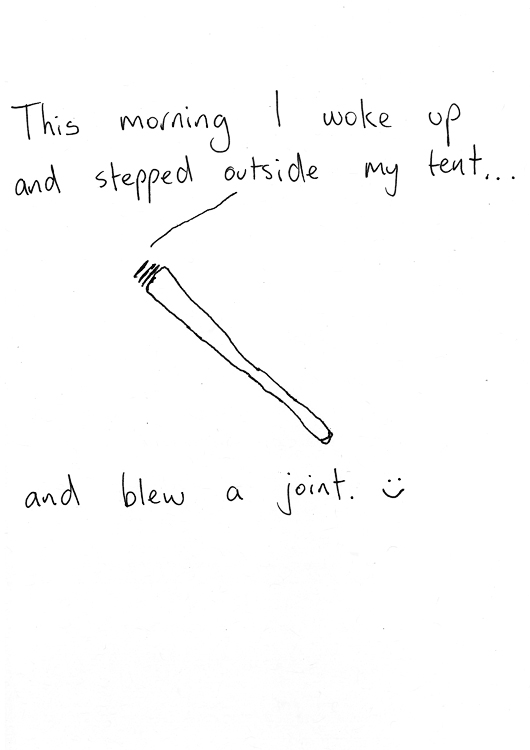 This morning I woke up
and stepped outside my tent...
and blew a joint. :)